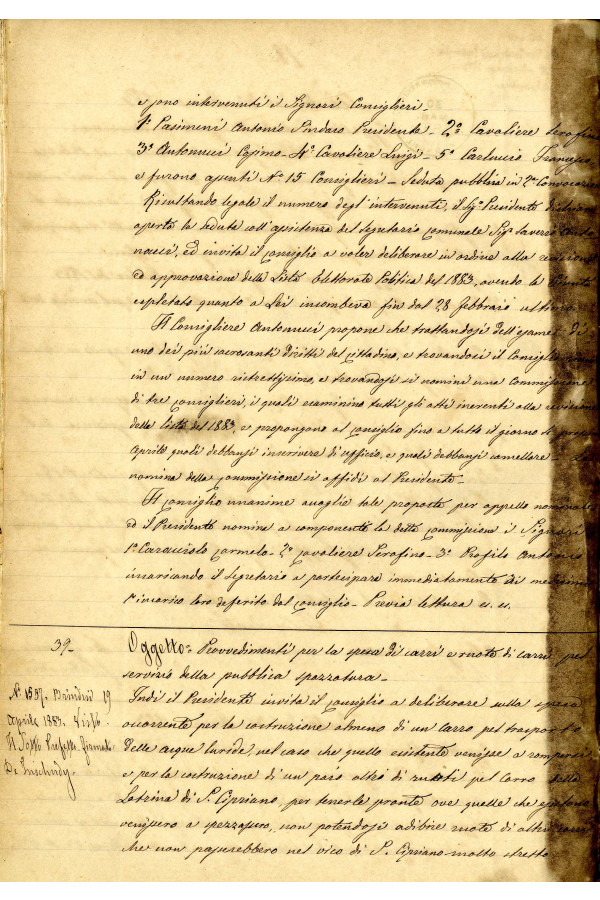 e sono intervenuti i Signori Consiglieri_
1° Pasimeni Antonio Pindaro Presidente_ 2° Cavaliere Serafino
3° Antonucci Cosimo_ 4° Cavaliere Luigi_ 5° Carluccio Francesco
e furono assenti N° 15 Consiglieri_ Seduta pubblica in 2a Convocazione
Risultando legale il numero degl' intervenuti, il Sigr Presidente dichiara
aperta la seduta coll' assistenza del Segretario Comunale Sigr Saverio Anto
nucci, ed invita il Consiglio a voler deliberare in ordine alla revisione
ed approvazione della Lista Elettorale Politica del 1883, avendo la Giunta
espletato quanto a Lei incombeva fin dal 28 febbraio ultimo
Il Consigliere Antonucci propone che trattandosi dell' esame di
uno dei più sacrosanti diritti del Cittadino, e trovandosi il Consiglio
in un numero ristrettissimo, e trovandosi si nomini una Commissione
di tre Consiglieri, i quali esaminino tutti gli atti inerenti alla revisione
della lista del 1883, e propongano al Consiglio fino a tutto il giorno
Aprile quali debbansi inscrivere di ufficio, e quali debbansi cancellare_ La
nomina della Commissione si affidi al Presidente_
Il Consiglio unanime accoglie tale proposta per appello nominale
ed il Presidente nomina a componenti la detta Commissione i Signori
1° Caracciolo Carmelo_ 2° Cavaliere Serafino_ 3° Profilo Antonio
incaricando il Segretario a partecipare immediatamente ai medesimi
l'incarico loro deferito dal Consiglio_ Previa lettura
39_
Oggetto= Provvedimenti per la spesa di carri e ruote di carri pel
servizio della pubblica spazzatura_
N° 1537. Brindisi 19
Aprile 1883. Visto
Il Sotto Prefetto firmato
Indi il Presidente invita il Consiglio a deliberare sulla spesa
occorrente per la costruzione almeno di un carro pel trasporto
delle acque luride, nel caso che quello esistente venisse a rompersi
e per la costruzione di un paio altro di ruote pel carro della
Latrina di S. Cipriano, per tenerle pronte ove quelle che esistono
venissero a spezzarsi, non potendosi adibire ruote di altri carri
che non passerebbero nel vico di S. Cipriano molto stretto